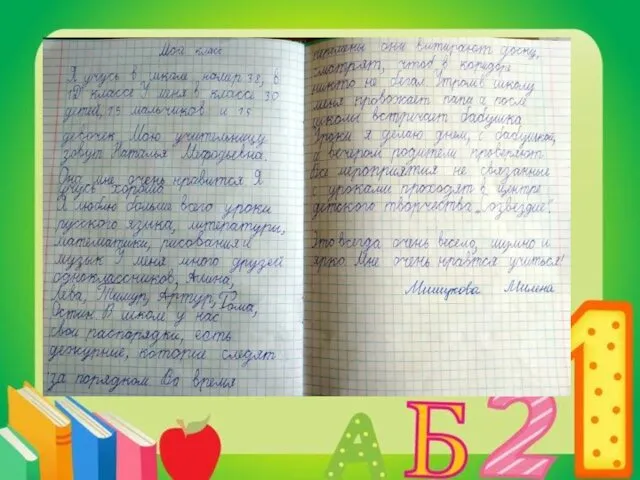 Мой класс
Я учусь в школе номер 38, в
1Д классе У меня в классе 30
детей, 15 мальчиков и 15
девочек Мою учительницу
зовут Наталья Мефодьевна.
Она мне очень нравится Я
учусь хорошо
Я люблю больше всего уроки
русского языка, литературы,
математики, рисования и
музык У меня много друзей
одноклассников, Алина,
Лёва, Тимур, Артур, Рома,
Остин В школ у нас
свои распорядки, есть
дежурние, которие следят
за порядком Во время
перемены они витирают доску,
смотрят, чтоб в коредоре
никто не бегал Утром в школу
меня провожает папа а после
школы встречает бабушка
Уроки я делаю днем, с бабушкой,
а вечером родители проверяют
Все мероприятия не связанные
с уроками проходят в Центре
детского творчества „Созвездие".
Это всегда очень весело, шумно и
ярко Мне очень нравтся учиться!
Мишукова Милена
А Б 2 1